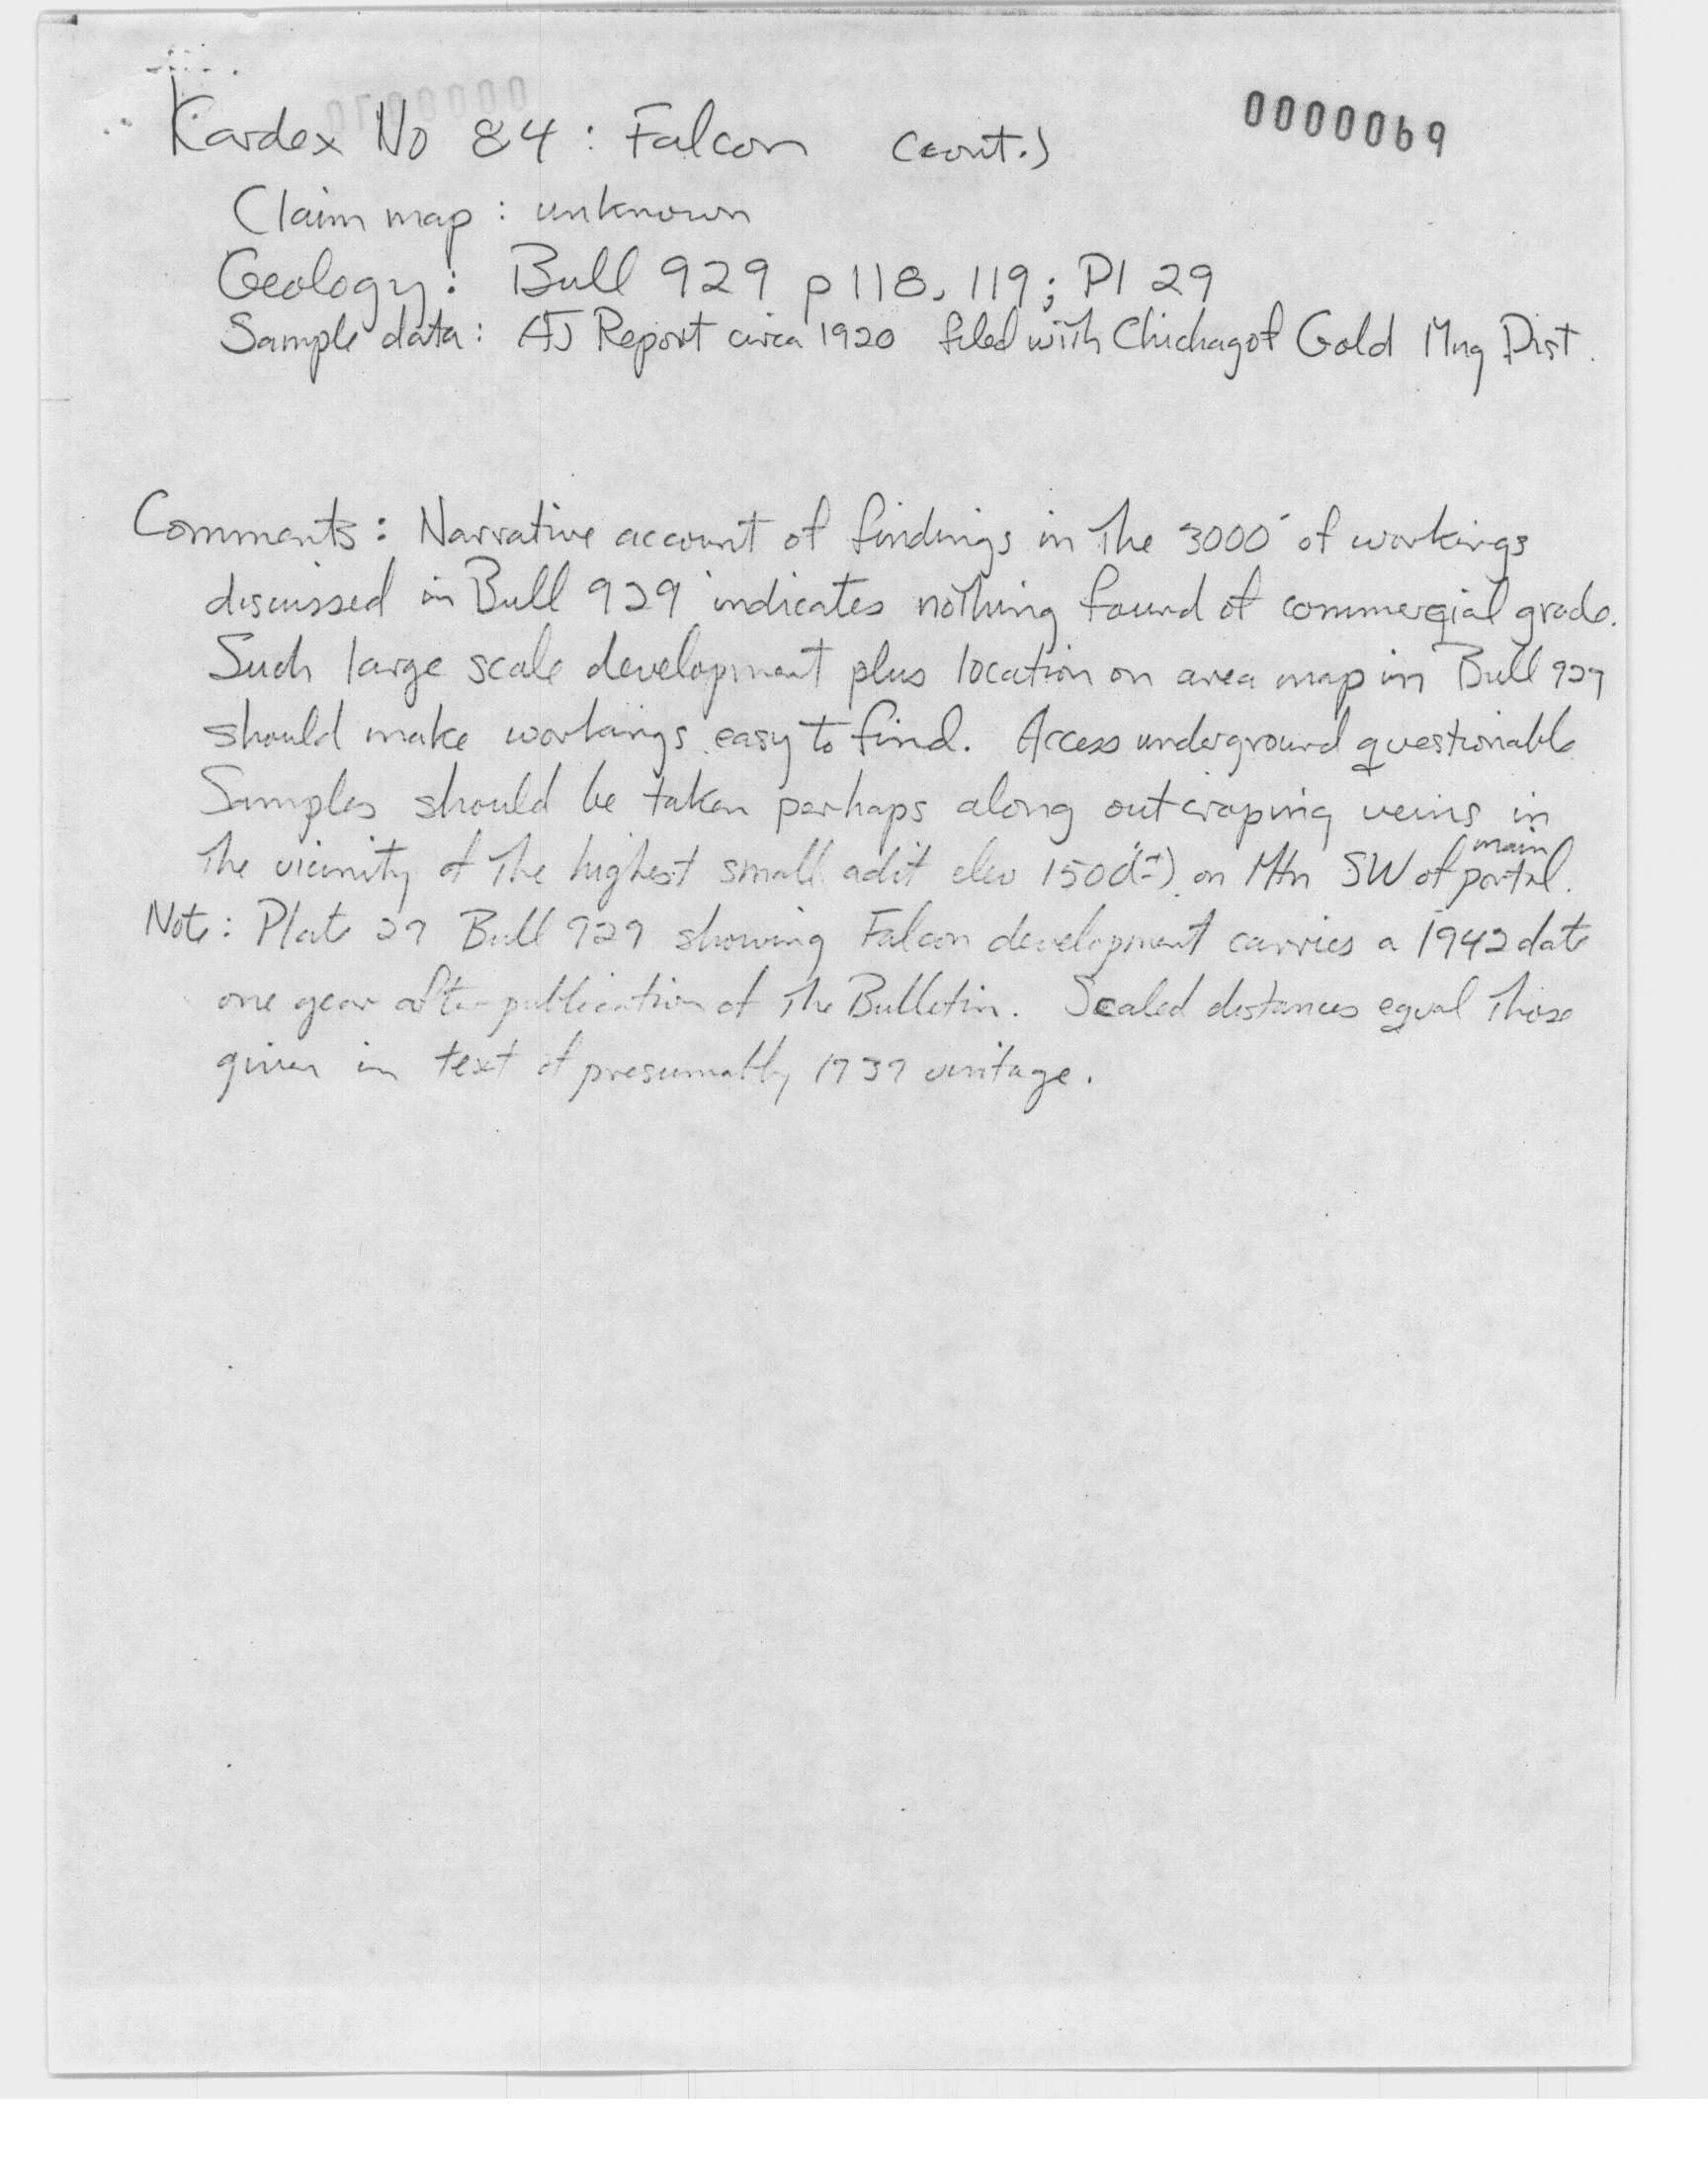 0000069
Kardex No 84 : Falcon (cont.)
Claim map : unknown
Geology : Bull 929 p 118, 119 ; Pl 29
Sample data : AJ Report circa 1920 filed with Chichagof Gold Mng Dist.
Comments : Narrative account of findings in the 3000' of workings
discussed in Bull 929 indicates nothing found of commercial grade.
Such large scale development plus location on area map in Bull 929
should make workings easy to find. Access underground questionable
Samples should be taken perhaps along outcroping veins in
the vicinity of the highest small adit elev 1500'(±) on Mtn SW of main portal.
Note : Plate 29 Bull 929 showing Falcon development carries a 1942 date
one year after publication of the Bulletin. Scaled distances equal those
given in text of presumably 1939 vintage.